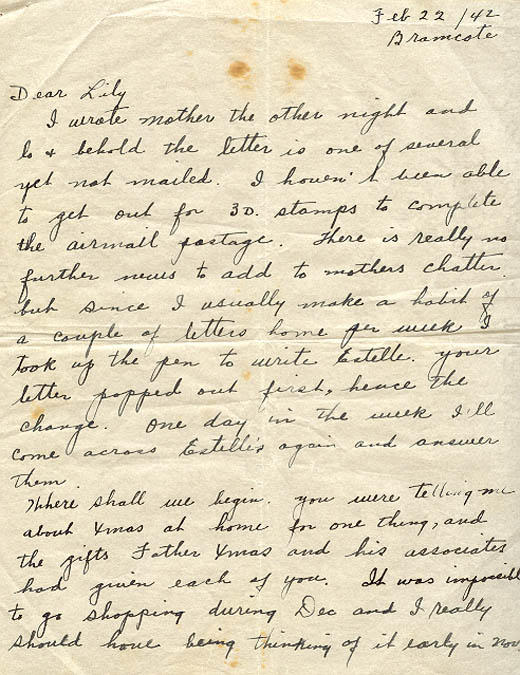 Feb 22 /42
Bramcote
Dear Lily
I wrote mother the other night and
lo & behold the letter is one of several
yet not mailed. I haven't been able
to get out for 3D. stamps to complete
the airmail postage. There is really no
further news to add to mothers chatter.
but since I usually make a habit of
a couple of letters home per week I
took up the pen to write Estelle. your
letter popped out first, hence the
change. One day in the week I'll
come across Estelle's again and answer
them.
Where shall we begin. you were telling me
about Xmas at home for one thing, and
the gifts Father Xmas and his associates
had given each of you. It was impossible
to go shopping during Dec and I really
should have being thinking of it early in Nov